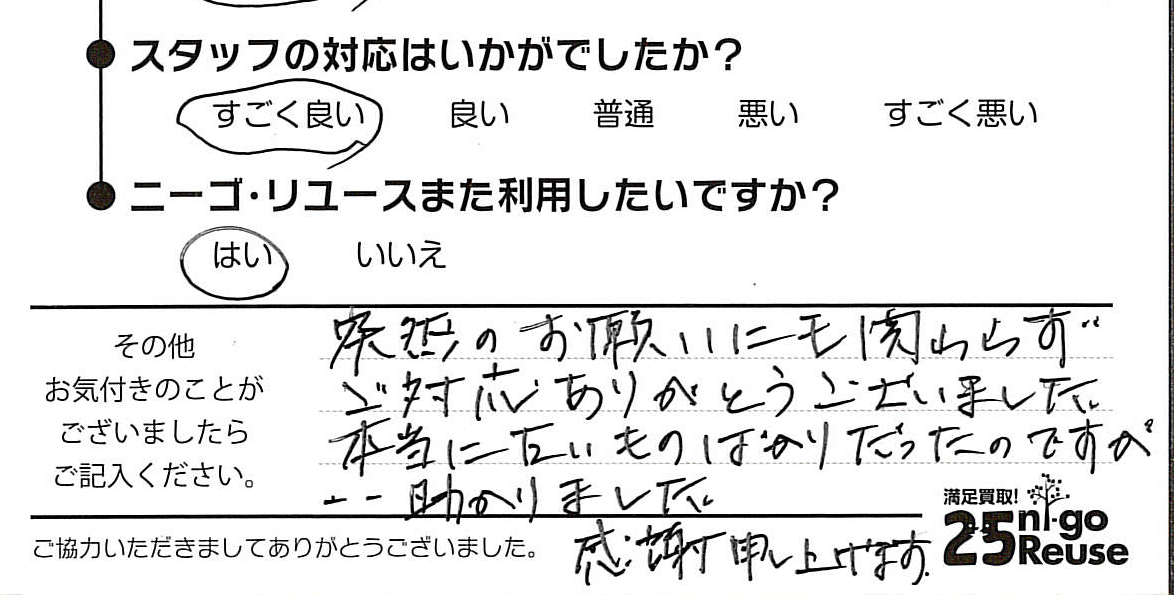 スタッフの対応はいかがでしたか？
すごく良い 良い 普通 悪い すごく悪い
ニーゴ・リユースまた利用したいですか？
はい いいえ
その他
お気付きのことが
ございましたら
ご記入ください。
突然のお願いにも関わらず
ご対応ありがとうございました。
本当に古いものばかりだったのですが
--助かりました。
感謝申し上げます。
ご協力いただきましてありがとうございました。
満足買取!
25 ni-go
Reuse